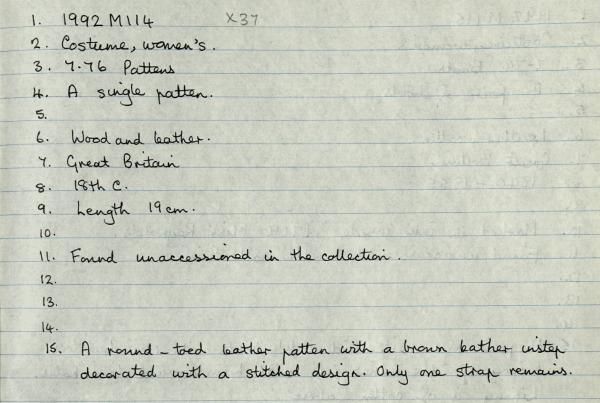 1. 1992 M114 X37
2. Costume, women's.
3. 7.76 Pattens
4. A single patten.
5.
6. Wood and leather.
7. Great Britain
8. 18th C.
9. Length 19 cm.
10.
11. Found unaccessioned in the collection.
12.
13.
14.
15. A round-toed leather patten with a brown leather instep
decorated with a stitched design. Only one strap remains.